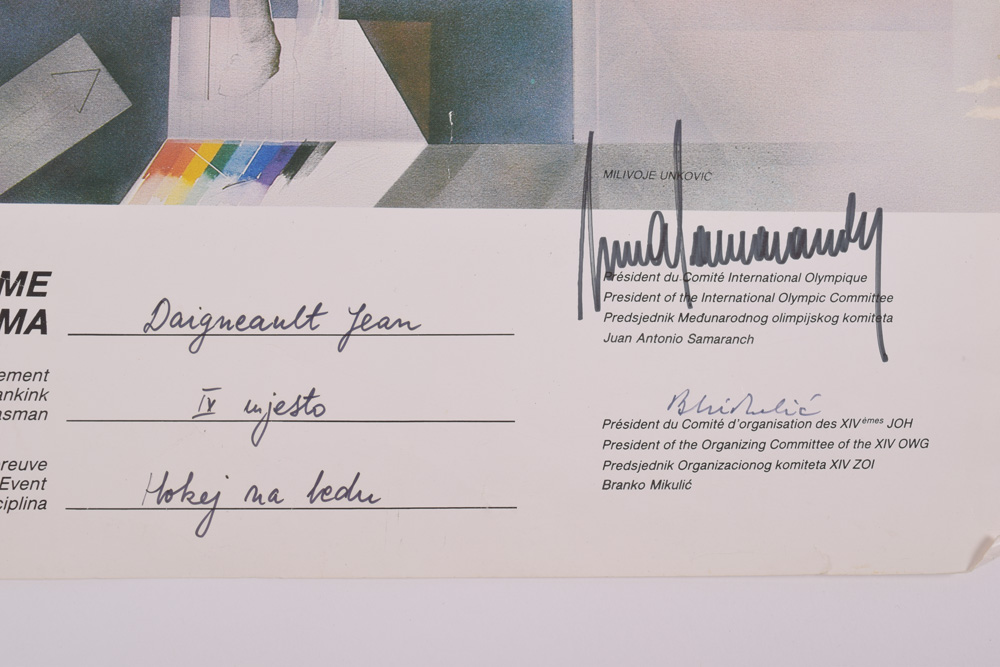 MILIVOJE UNKOVIĆ
ME
MA
Daigneault Jean
ement
ankink
asman
IV mjesto
reuve
Event
ciplina
Hokej na ledu
Président du Comité International Olympique
President of the International Olympic Committee
Predsjednik Međunarodnog olimpijskog komiteta
Juan Antonio Samaranch
Président du Comité d'organisation des XIVèmes JOH
President of the Organizing Committee of the XIV OWG
Predsjednik Organizacionog komiteta XIV ZOI
Branko Mikulić